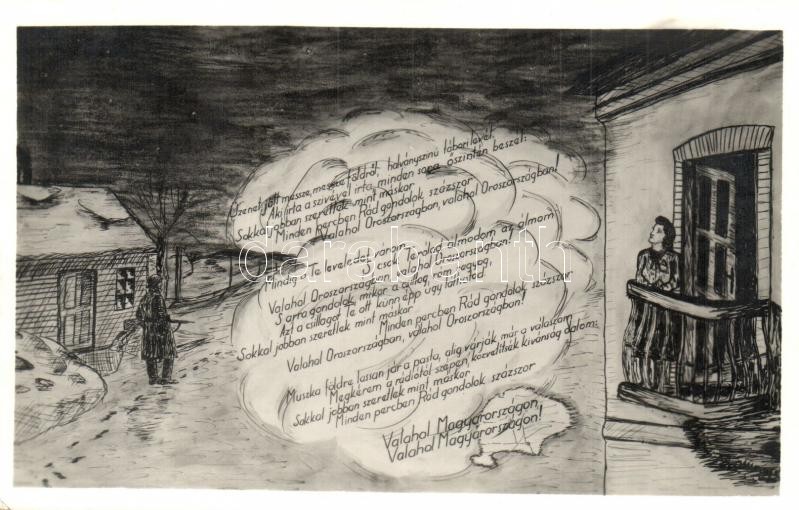 Üzenet jött messze, messze földről, halványszinű tábori levél.
Aki írta a szívével írta, minden sora őszintén beszél:
Sokkal jobban szeretlek mint máskor
Minden percben Rád gondolok százszor
Valahol Oroszországban, valahol Oroszországban!
Mindig a Te leveledet várom,
csak Terólad álmodom az álmom
Valahol Oroszországban, valahol Oroszországban!
S arra gondolok, mikor a csillag rám ragyog,
Azt a csillagot Te ott künn épp úgy láthatod
Sokkal jobban szeretlek mint máskor
Minden percben Rád gondolok százszor
Valahol Oroszországban, valahol Oroszországban!
Muszka földre lassan jár a posta, alig várják már a válaszom
Megkérem a rádiótól szépen közvetítsék kívánság dalom:
Sokkal jobban szeretlek mint, máskor
Minden percben Rád gondolok százszor
Valahol Magyarországon,
Valahol Magyarországon!
darabanth